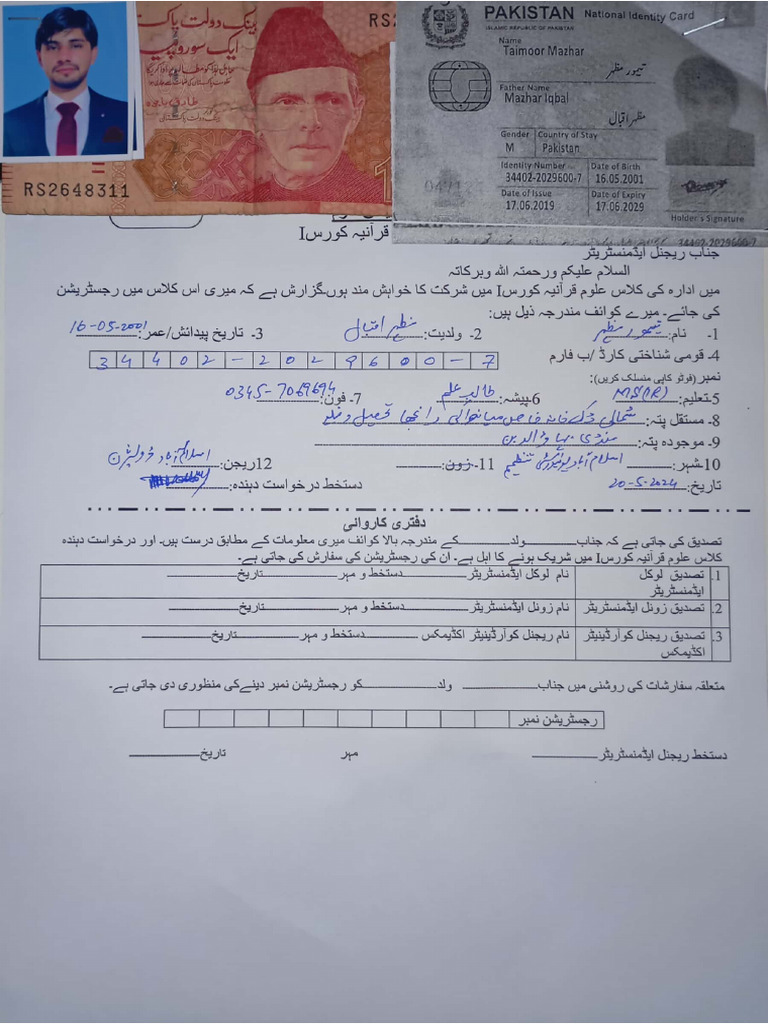 بینک دولت پاکستان
ایک سو روپیہ
RS2648311
PAKISTAN National Identity Card
ISLAMIC REPUBLIC OF PAKISTAN
Name
Taimoor Mazhar
تیمور مظہر
Father Name
Mazhar Iqbal
مظہر اقبال
Gender Country of Stay
M Pakistan
Identity Number Date of Birth
34402-2029600-7 16.05.2001
Date of Issue Date of Expiry
17.06.2019 17.06.2029
Holder's Signature
34402-2029600-7
قرآنیہ کورس I
جناب ریجنل ایڈمنسٹریٹر
السلام علیکم ورحمتہ اللہ وبرکاتہ
میں ادارہ کی کلاس علوم قرآنیہ کورس I میں شرکت کا خواہش مند ہوں۔گزارش ہے کہ میری اس کلاس میں رجسٹریشن
کی جائے۔ میرے کوائف مندرجہ ذیل ہیں:
1- نام: تیمور مظہر 2- ولدیت: مظہر اقبال 3- تاریخ پیدائش/عمر: 16-05-2001
4- قومی شناختی کارڈ /ب فارم
34402-2029600-7
نمبر (فوٹو کاپی منسلک کریں):
5-تعلیم: MS(IR) 6پیشہ: طالب علم 7- فون: 0345-7069694
8- مستقل پتہ: شمالی محلہ خاص میانوالی رانجھا تحصیل و ضلع
9- موجودہ پتہ: منڈی بہاؤالدین
10-شہر: اسلام آباد یونیورسٹی تنظیم 11- زون: 12ریجن: اسلام آباد
تاریخ: 20-5-2024 دستخط درخواست دہندہ:
دفتری کاروائی
تصدیق کی جاتی ہے کہ جناب ولد کے مندرجہ بالا کوائف میری معلومات کے مطابق درست ہیں۔ اور درخواست دہندہ
کلاس علوم قرآنیہ کورس I میں شریک ہونے کا اہل ہے۔ ان کی رجسٹریشن کی سفارش کی جاتی ہے۔
1. تصدیق لوکل ایڈمنسٹریٹر نام لوکل ایڈمنسٹریٹر دستخط و مہر تاریخ
2. تصدیق زونل ایڈمنسٹریٹر نام زونل ایڈمنسٹریٹر دستخط و مہر تاریخ
3. تصدیق ریجنل کوآرڈینیٹر اکڈیمکس نام ریجنل کوآرڈینیٹر اکڈیمکس دستخط و مہر تاریخ
متعلقہ سفارشات کی روشنی میں جناب ولد کو رجسٹریشن نمبر دینے کی منظوری دی جاتی ہے۔
رجسٹریشن نمبر
دستخط ریجنل ایڈمنسٹریٹر مہر تاریخ